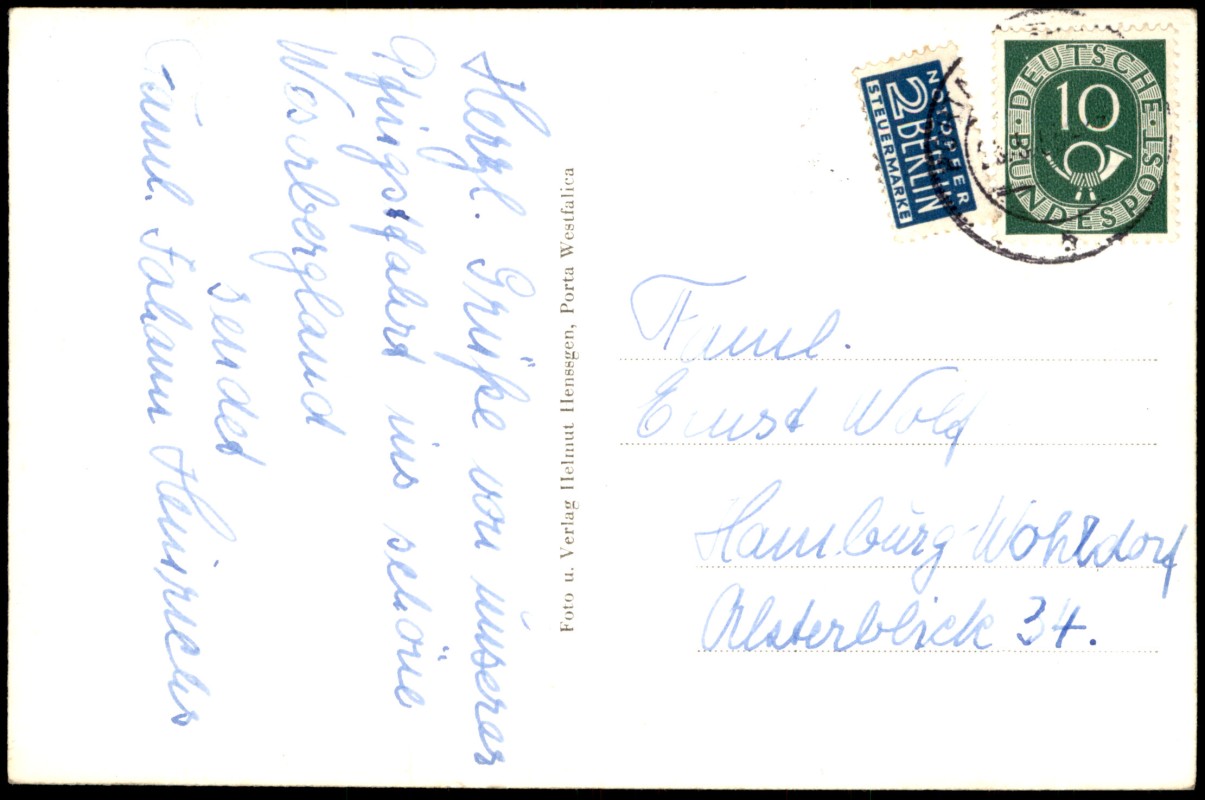 Herzl. Grüße von unserer
Pfingstfahrt ins schöne
Weserbergland
sendet
Famil. Johann Heinrichs
Foto u. Verlag Helmut Henssgen, Porta Westfalica
NOTOPFER
2 BERLIN
STEUERMARKE
DEUTSCHE BUNDESPOST
10
Famil.
Ernst Wolf
Hamburg-Wohldorf
Alsterblick 34.